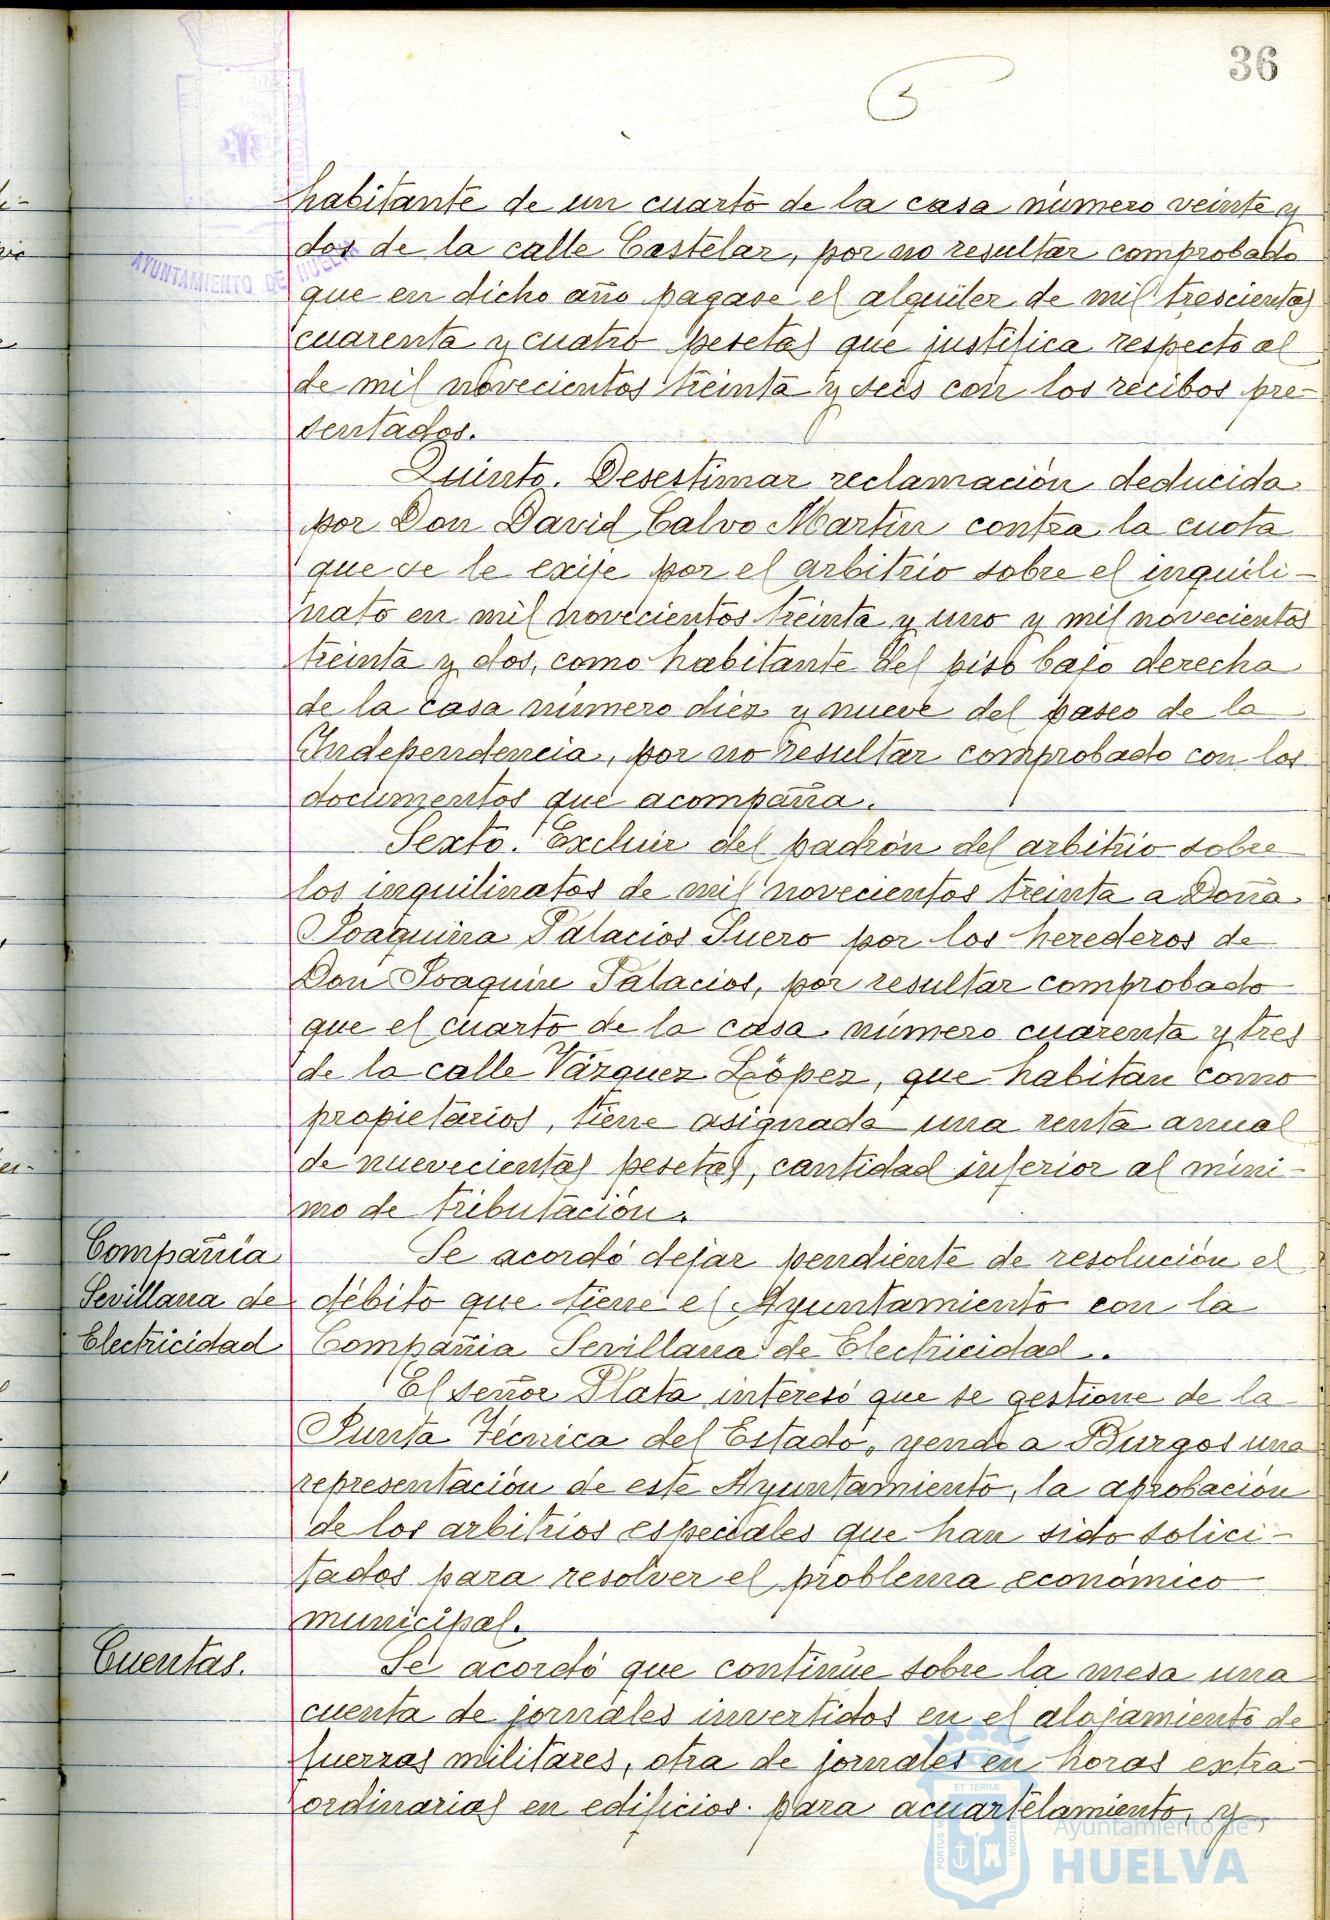 36
AYUNTAMIENTO DE HUELVA
habitante de un cuarto de la casa número veinte y
dos de la calle Castelar, por no resultar comprobado
que en dicho año pagase el alquiler de mil trescientas
cuarenta y cuatro pesetas que justifica respecto al
de mil novecientos treinta y seis con los recibos pre-
sentados.
Quinto. Desestimar reclamación deducida
por Don David Calvo Martín contra la cuota
que se le exije por el arbitrio sobre el inquili-
nato en mil novecientos treinta y uno y mil novecientos
treinta y dos, como habitante del piso bajo derecha
de la casa número diez y nueve del paseo de la
Independencia, por no resultar comprobado con los
documentos que acompaña.
Sexto. Excluir del padrón del arbitrio sobre
los inquilinatos de mil novecientos treinta a Doña
Joaquina Palacios Suero por los herederos de
Don Joaquín Palacios, por resultar comprobado
que el cuarto de la casa número cuarenta y tres
de la calle Vázquez López, que habitan como
propietarios, tiene asignada una renta anual
de nuevecientas pesetas, cantidad inferior al míni-
mo de tributación.
Compañía
Sevillana de
Electricidad
Se acordó dejar pendiente de resolución el
débito que tiene el Ayuntamiento con la
Compañia Sevillana de Electricidad.
El señor Plata interesó que se gestione de la
Junta Técnica del Estado, yendo a Burgos una
representación de este Ayuntamiento, la aprobación
de los arbitrios especiales que han sido solici-
tados para resolver el problema económico
municipal.
Cuentas.
Se acordó que continúe sobre la mesa una
cuenta de jornales invertidos en el alojamiento de
fuerzas militares, otra de jornales en horas extra-
ordinarias en edificios para acuartelamiento, y
ET TERRÆ
PORTUS M
CUSTODIA
Ayuntamiento de
HUELVA